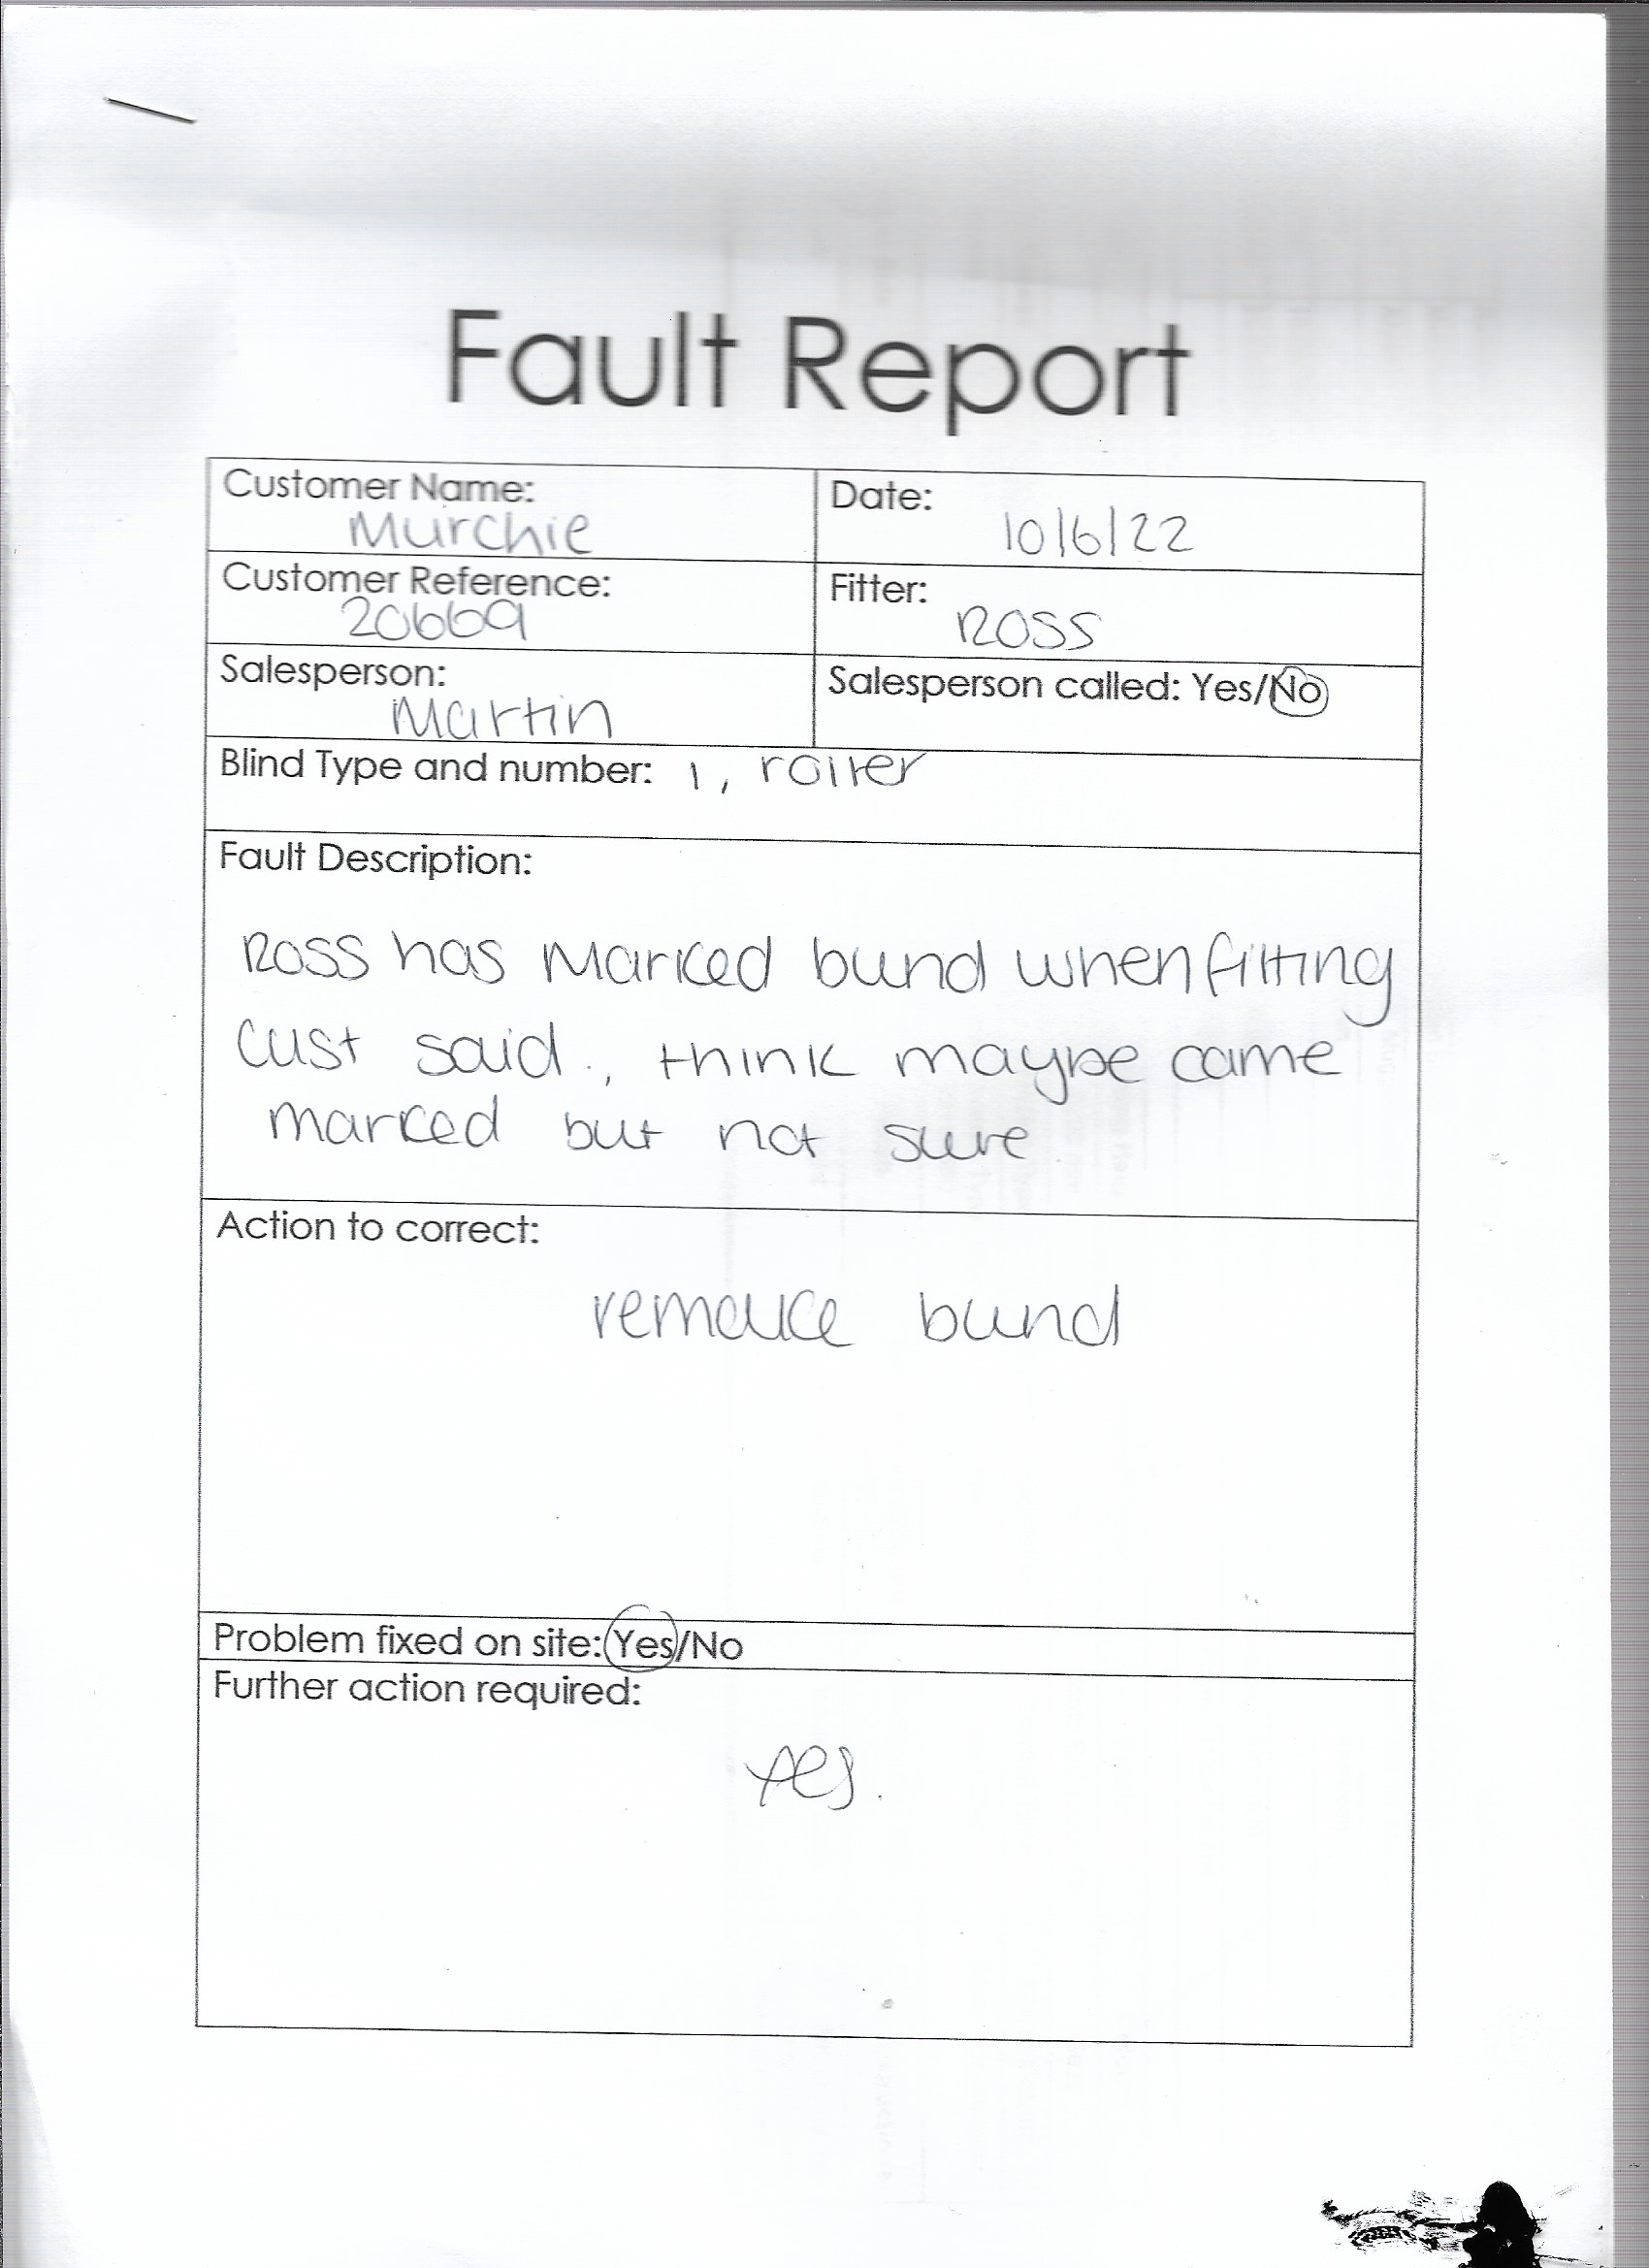 Fault Report
Customer Name:
Murchie
Date:
10/6/22
Customer Reference:
20669
Fitter:
ROSS
Salesperson:
Martin
Salesperson called: Yes/No
Blind Type and number: 1, roller
Fault Description:
Ross has marked blind when fitting
cust said., think maybe came
marked but not sure
Action to correct:
remake blind
Problem fixed on site: Yes/No
Further action required:
Yes.